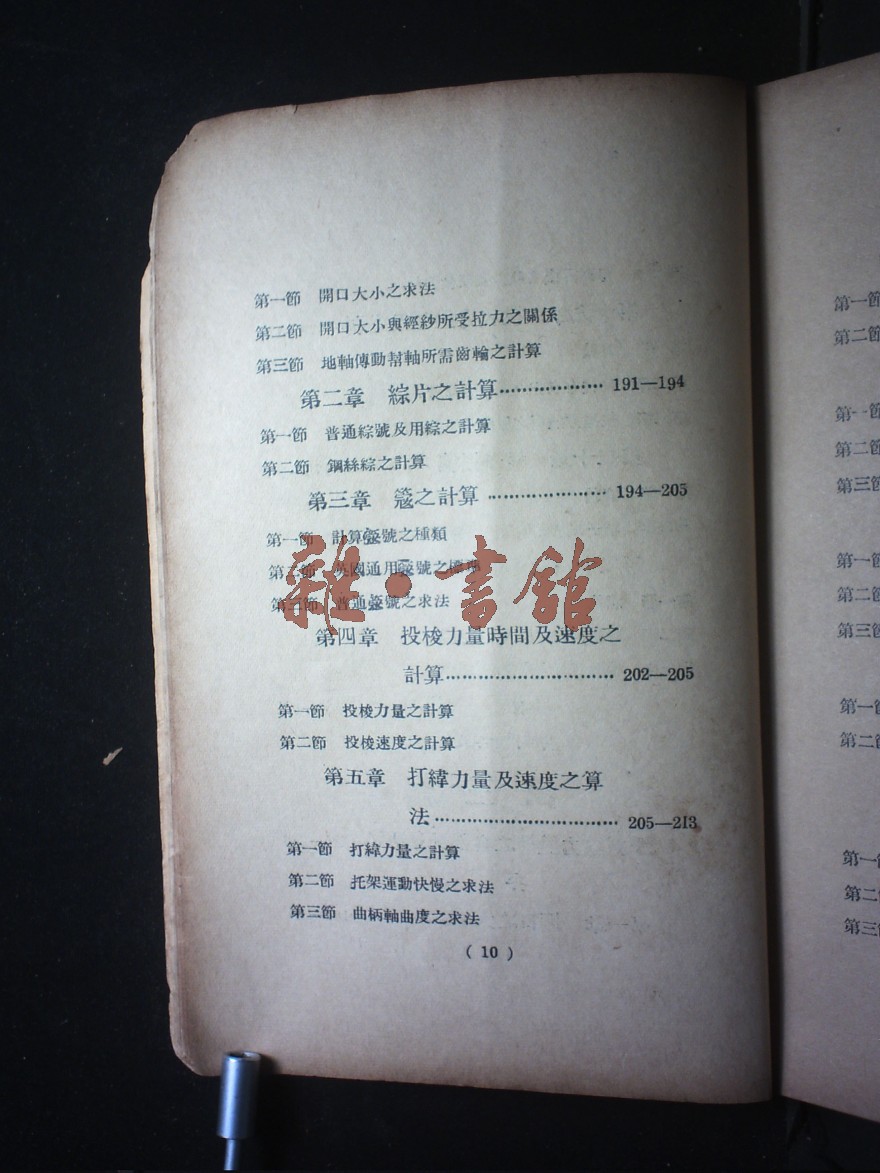 第一節 開口大小之求法
第二節 開口大小與經紗所受拉力之關係
第三節 地軸傳動幫軸所需齒輪之計算
第二章 綜片之計算……………… 191—194
第一節 普通綜號及用綜之計算
第二節 鋼絲綜之計算
第三章 筬之計算 ………………… 194—205
第一節 計算筬號之種類
第二節 英國通用筬號之標準
第三節 普通筬號之求法
第四章 投梭力量時間及速度之
計算………………………… 202—205
第一節 投梭力量之計算
第二節 投梭速度之計算
第五章 打緯力量及速度之算
法…………………………… 205—213
第一節 打緯力量之計算
第二節 托架運動快慢之求法
第三節 曲柄軸曲度之求法
( 10 )
雜·書館
第一
第二
第一
第二
第三
第一
第二
第三
第一
第二
第一
第二
第三